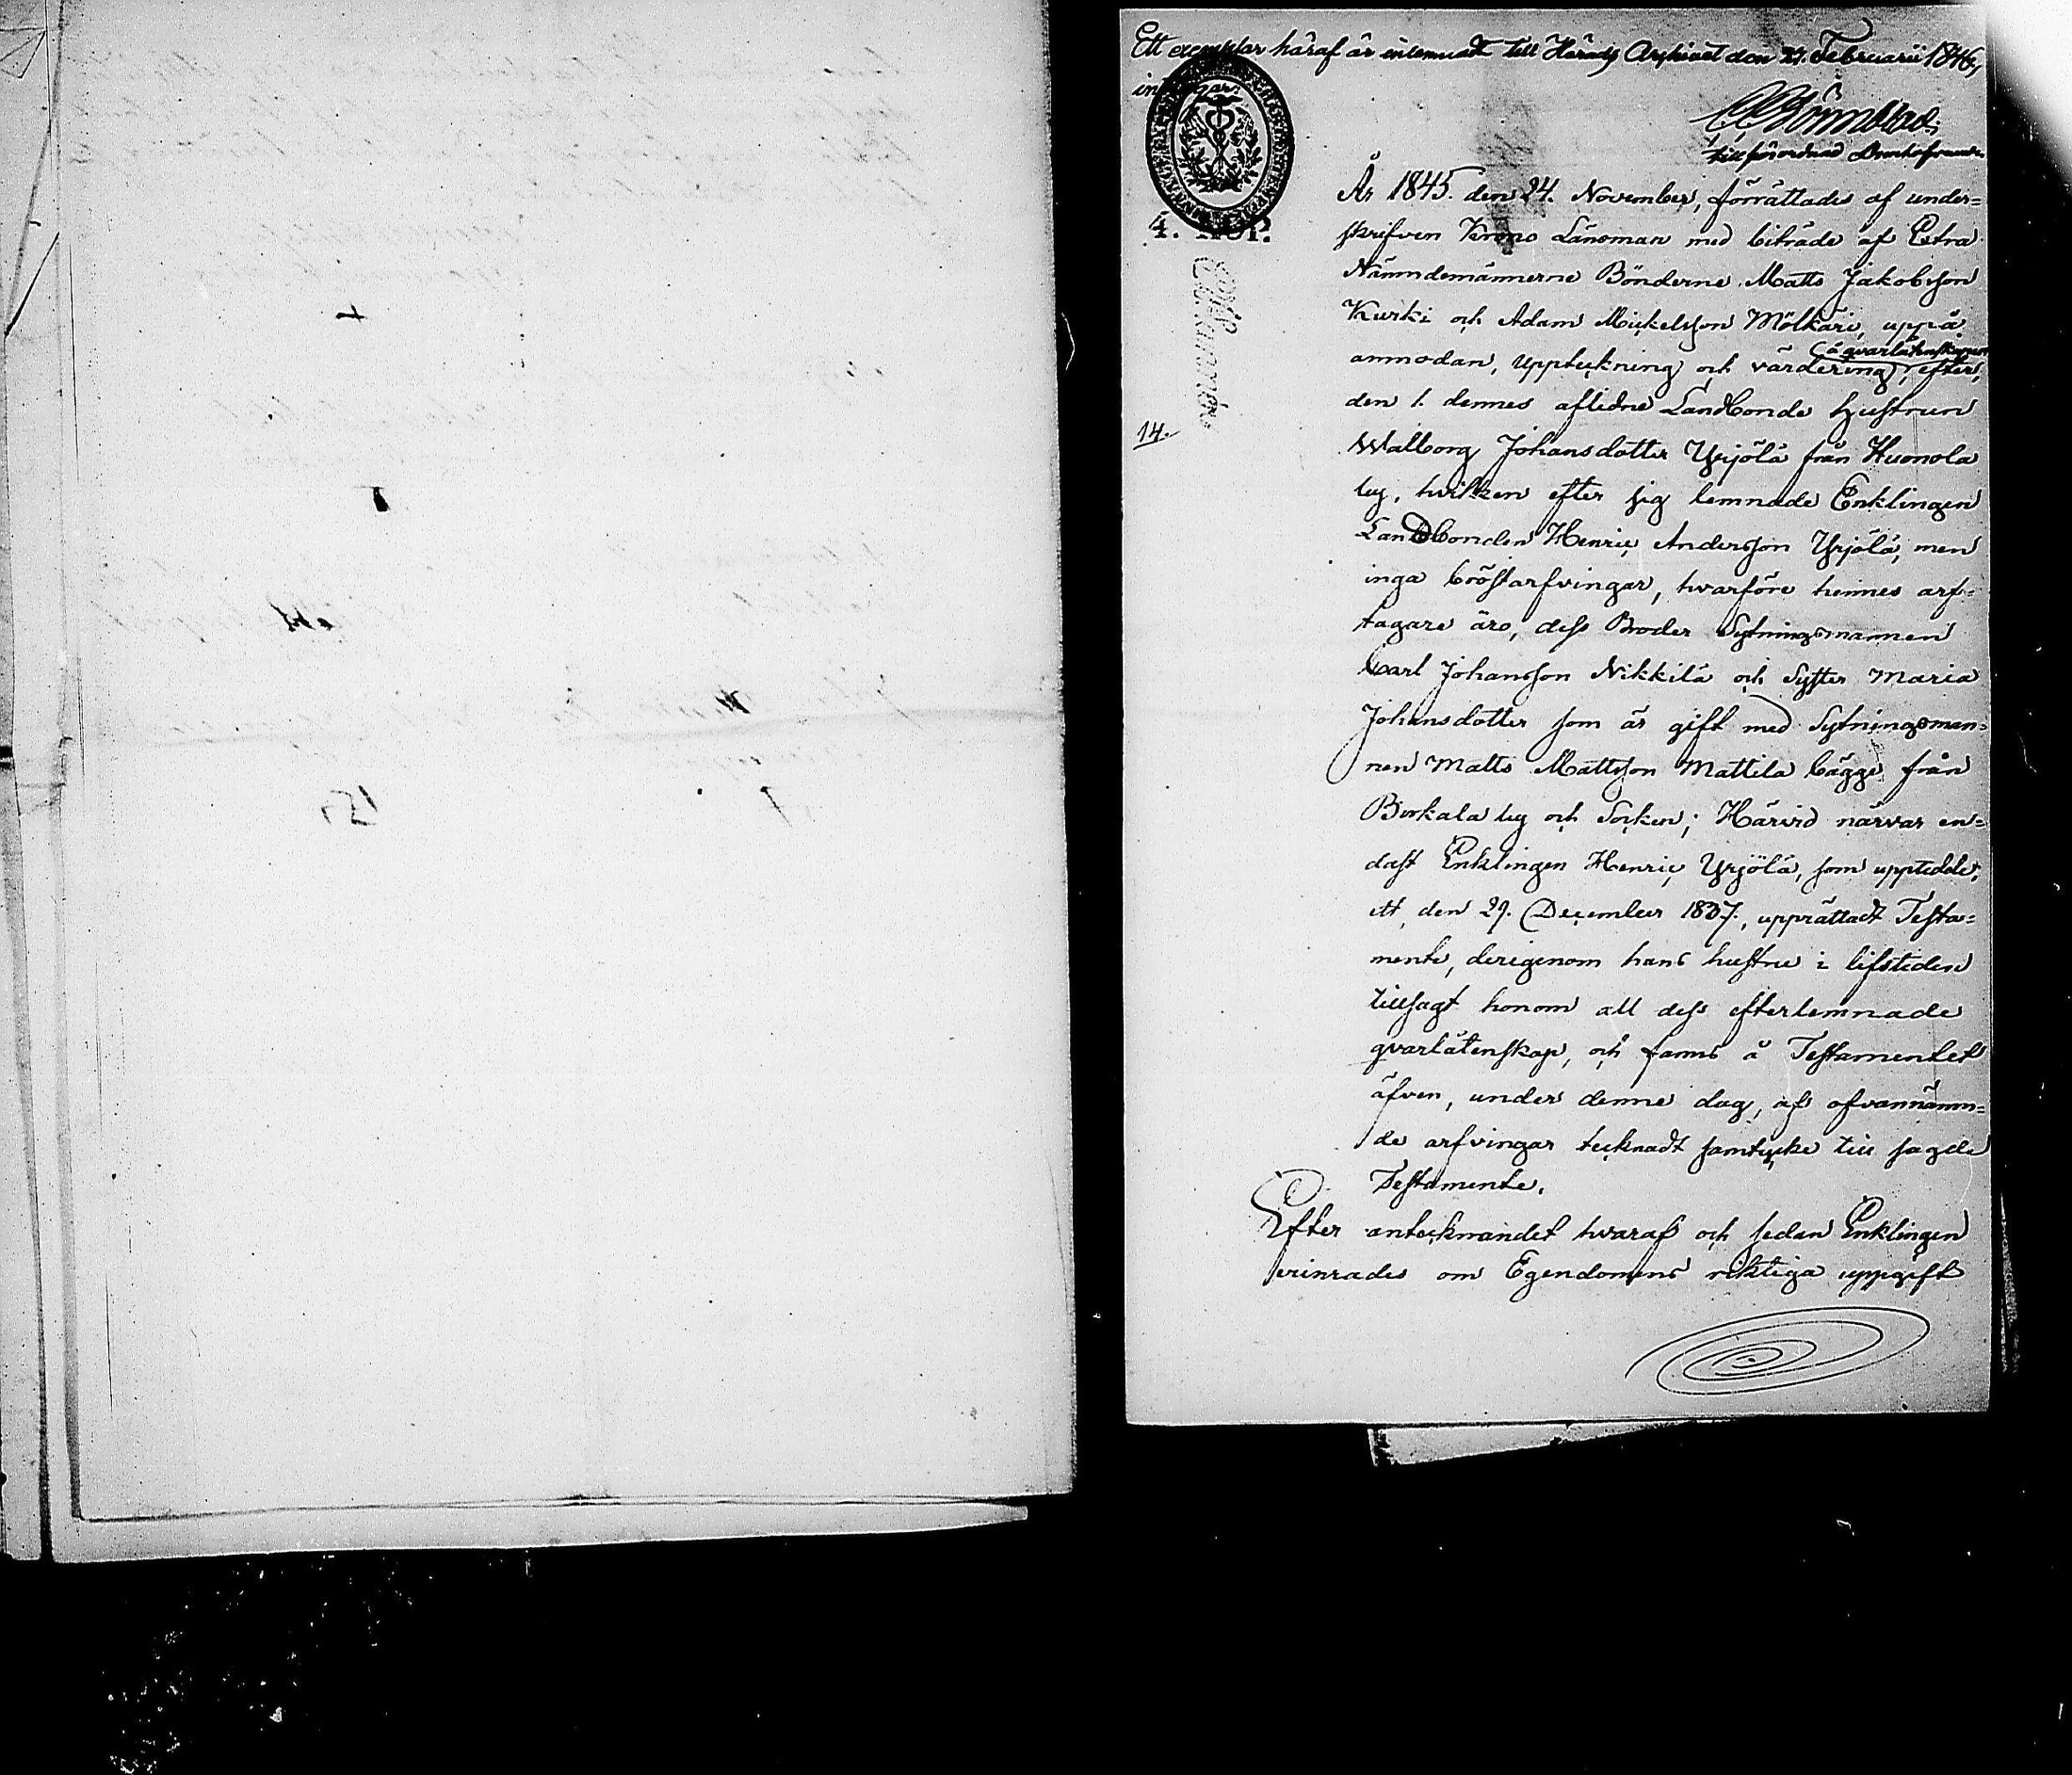 Ett exemplar häraf är inlemnadt till Härads Arkivet den 27. Februarii 1846,
4. KOP.
År 1845. den 24. November, förrättades af under=
skrifven Krono Länsman med biträde af Extra
Nämndemännerne Bönderne Matts Jakobsson
Kurki och Adam Mickelsson Mölkäri, uppå
anmodan, uppteckning och värdering, å qvarlåtenskapen efter,
den 1. dennes aflidne Landbonde hustrun
14.
Walborg Johansdotter Yrjölä från Kuonola
by, hvilken efter sig lemnade Enklingen
Landbonden Henric Andersson Yrjölä, men
inga bröstarfvingar, hvarföre hennes arf=
tagare äro, dess Broder Sytningsmannen
Carl Johansson Nikkilä och Syster Maria
Johansdotter som är gift med Sytningsman=
nen Matts Mattsson Mattila bägge från
Birkala by och Socken; Härvid närvar en=
dast Enklingen Henric Yrjölä, som uppteddet,
ett, den 29. December 1837. upprättadt Testa=
mente, derigenom hans hustru i lifstiden
tillsagt honom all dess efterlemnade
qvarlåtenskap, och fanns å Testamentet
äfven, under denne dag, af ofvannämn=
de arfvingar tecknadt samtycke till sagde
Testamente.
Efter antecknandet hvaraf och sedan Enklingen
erinrades om Egendomens riktiga uppgift